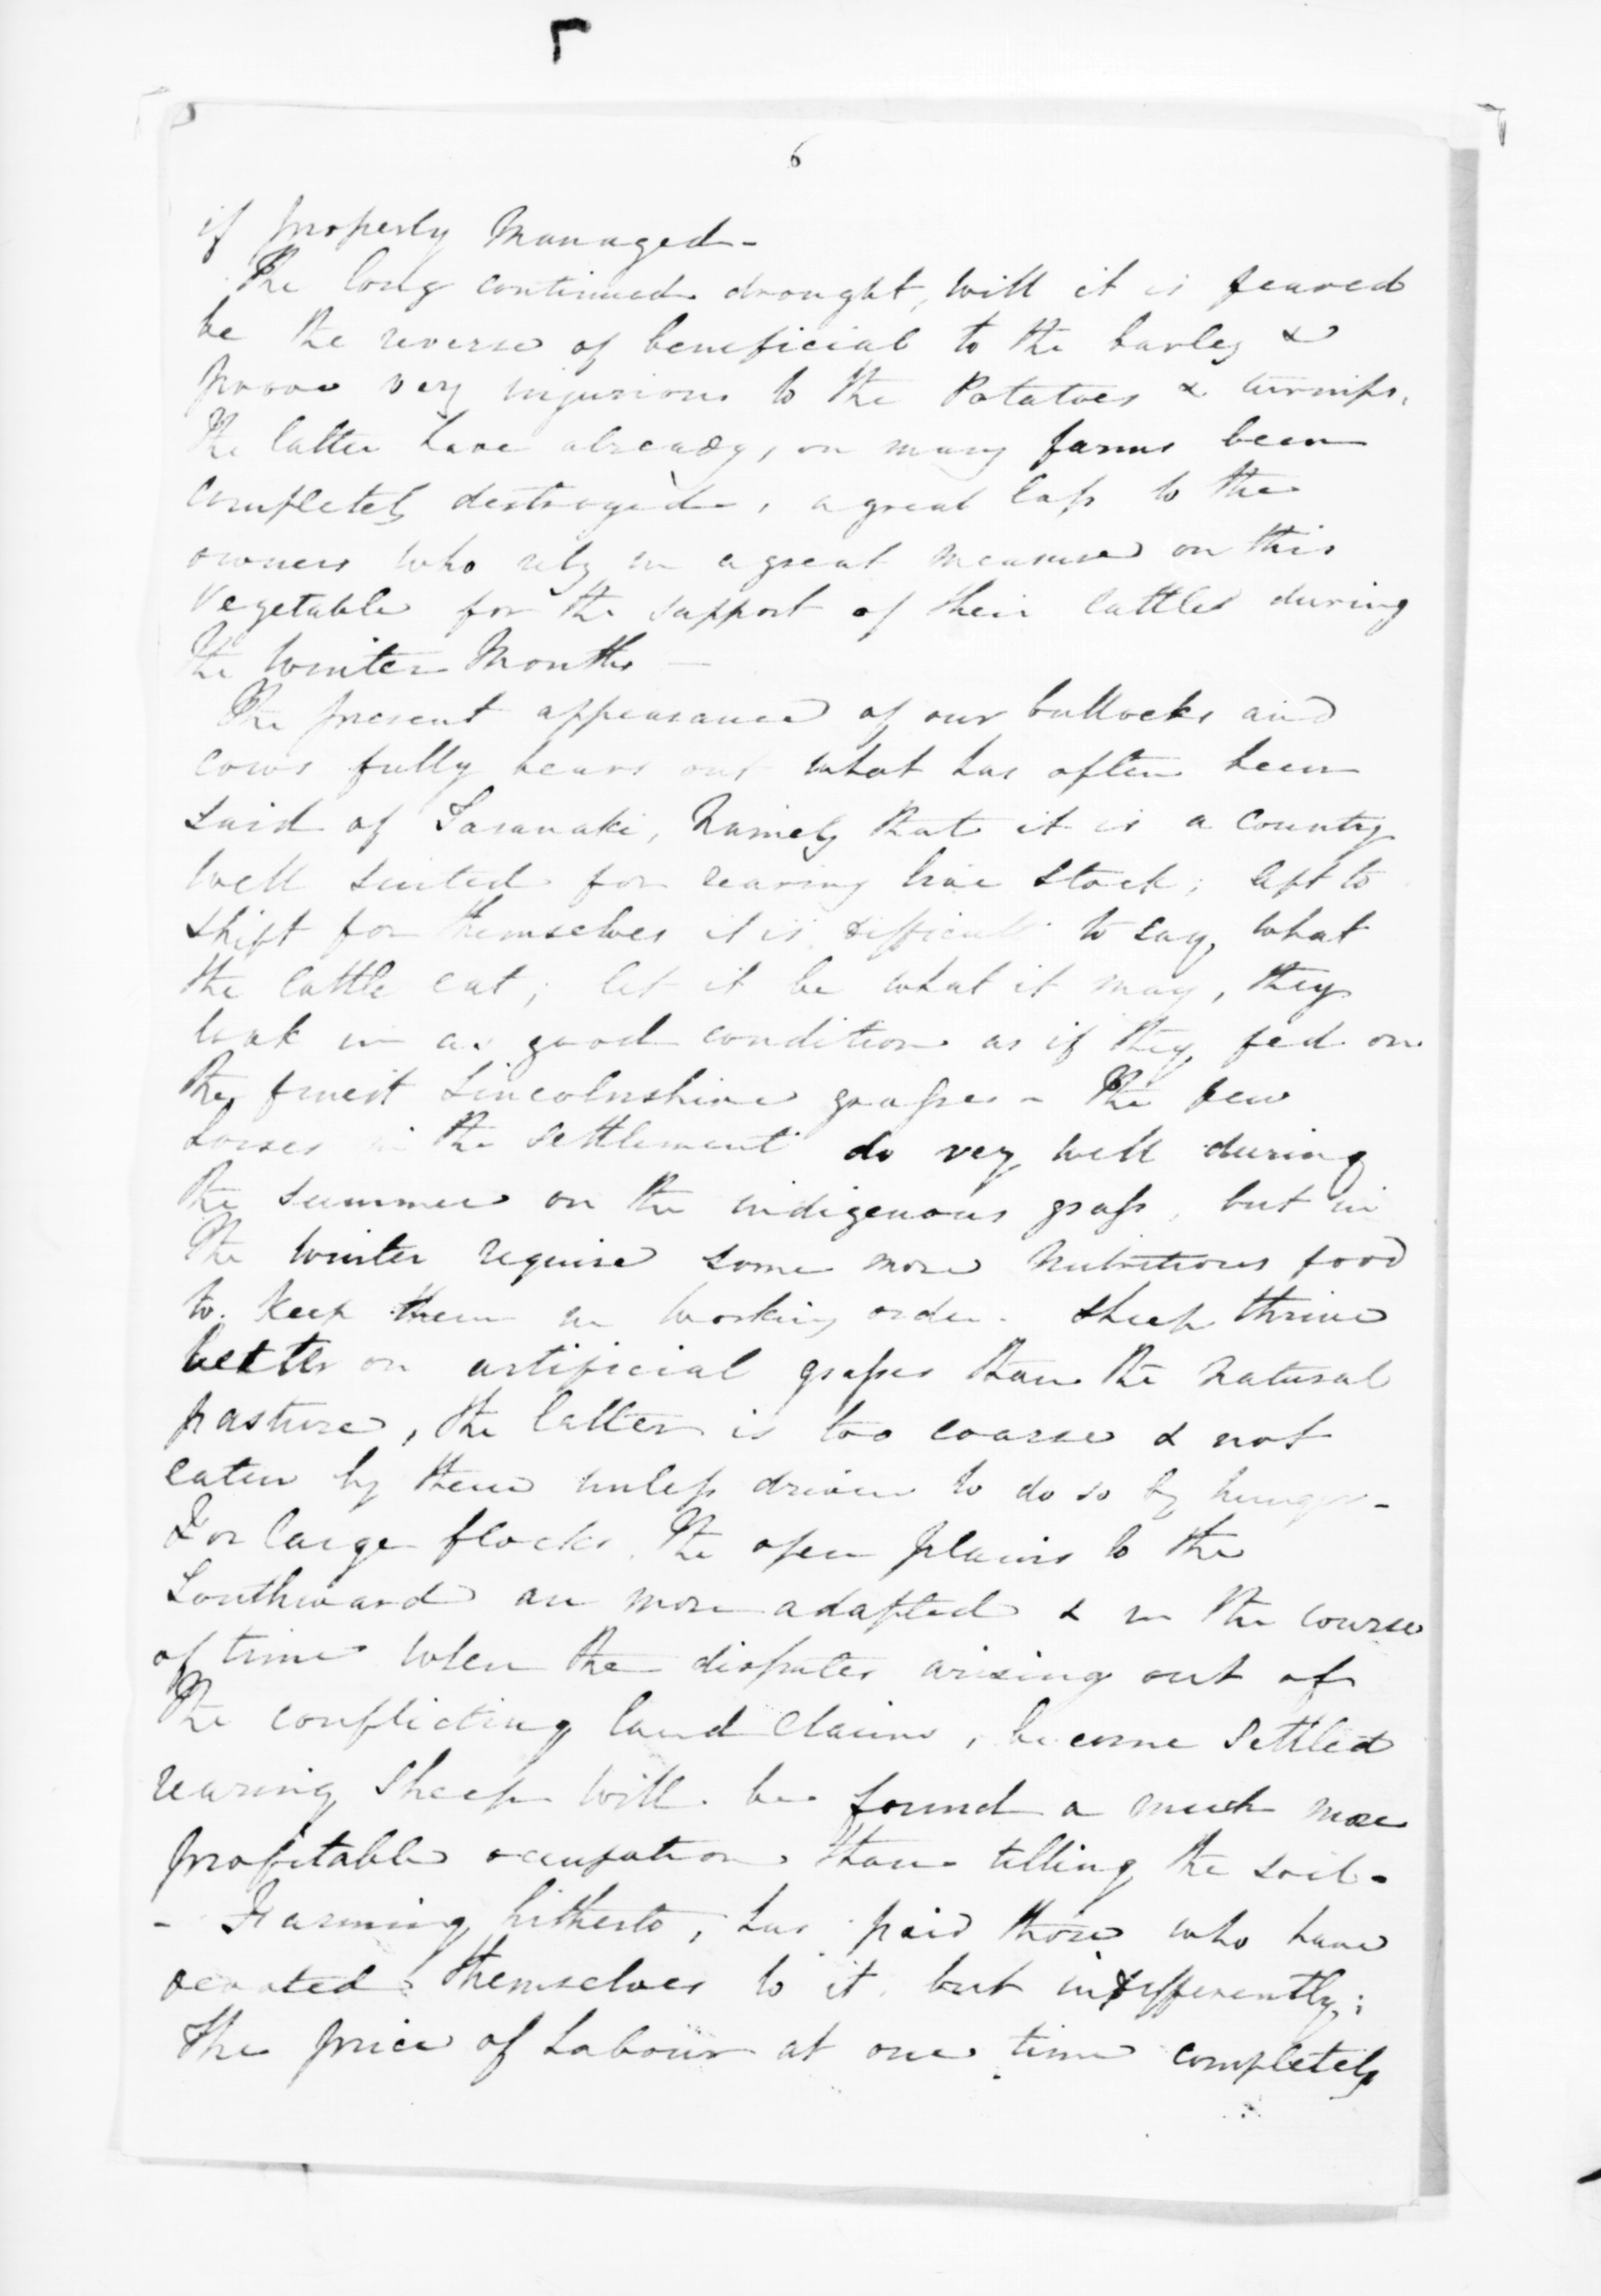 6
if properly managed -
The long continued drought, will it is feared
be the reverse of beneficial to the barley &
prove very injurious to the Potatoes & turnips,
the latter have already, on many farms been
completely destroyed, a great loss to the
owners who rely in a great measure on this
Vegetable for the support of their Cattle during
the Winter Months -
The present appearance of our bullocks and
cows fully bears out what has often been
said of Taranaki, Namely that it is a County
well suited for rearing live stock; left to
shift for themselves it is difficult to say, what
the Cattle eat; let it be what it may, they
look in as good condition as if they fed on
the finest Lincolnshire grasses - The few
horses in the settlement do very well during
the summer on the indigenous grass, but in
the winter require some more nutritious food
to keep them in working order. Sheep thrive
better on artificial grasses than the natural
pasture, the latter is too coarse & not
eaten by them unless driven to do so by hunger -
For large flocks, the open plains to the
Southward are more adapted & in the course
of time when the disputes arising out of
the conflicting land Claims, become settled
rearing sheep will be found a much more
profitable occupation than tilling the soil -
- Farming hitherto, has paid those who have
devoted themselves to it, but indifferently;
the price of Labour at one time completely